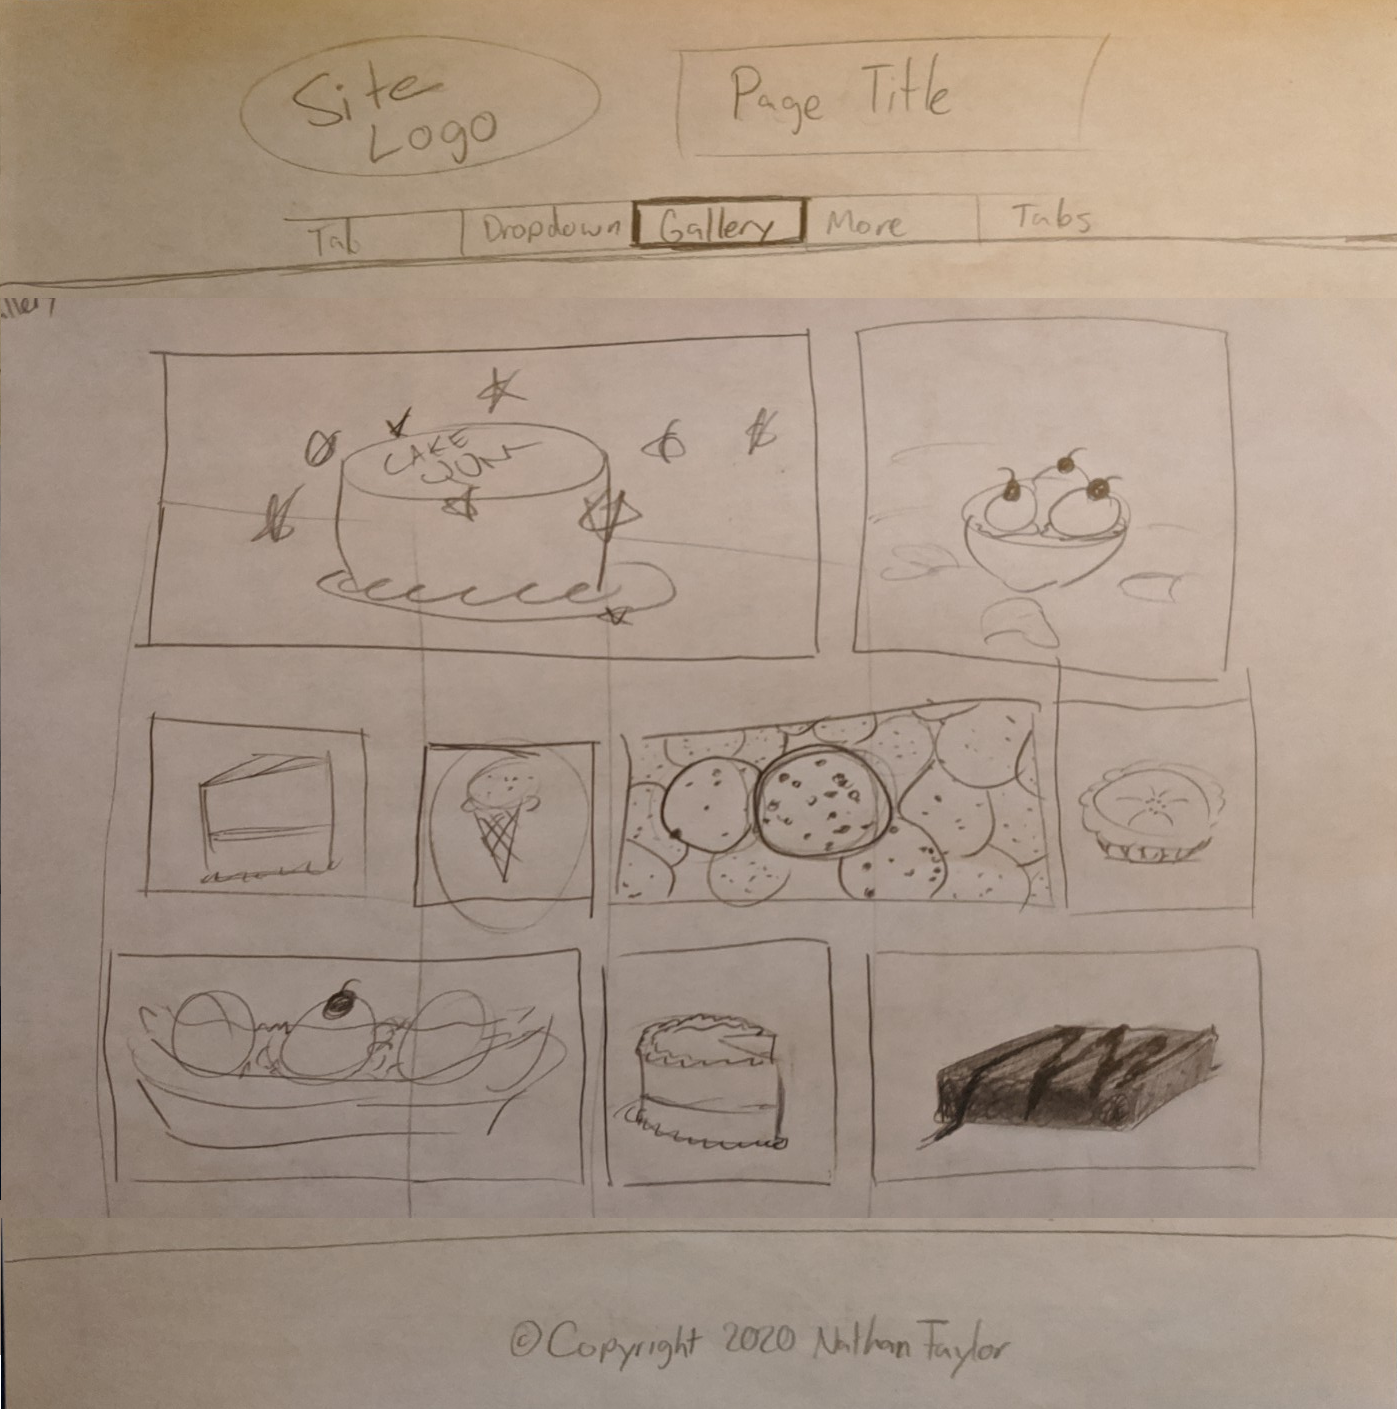 Site
Logo
Page Title
Tab
Dropdown
Gallery
More
Tabs
CAKE
© Copyright 2020 Nathan Taylor